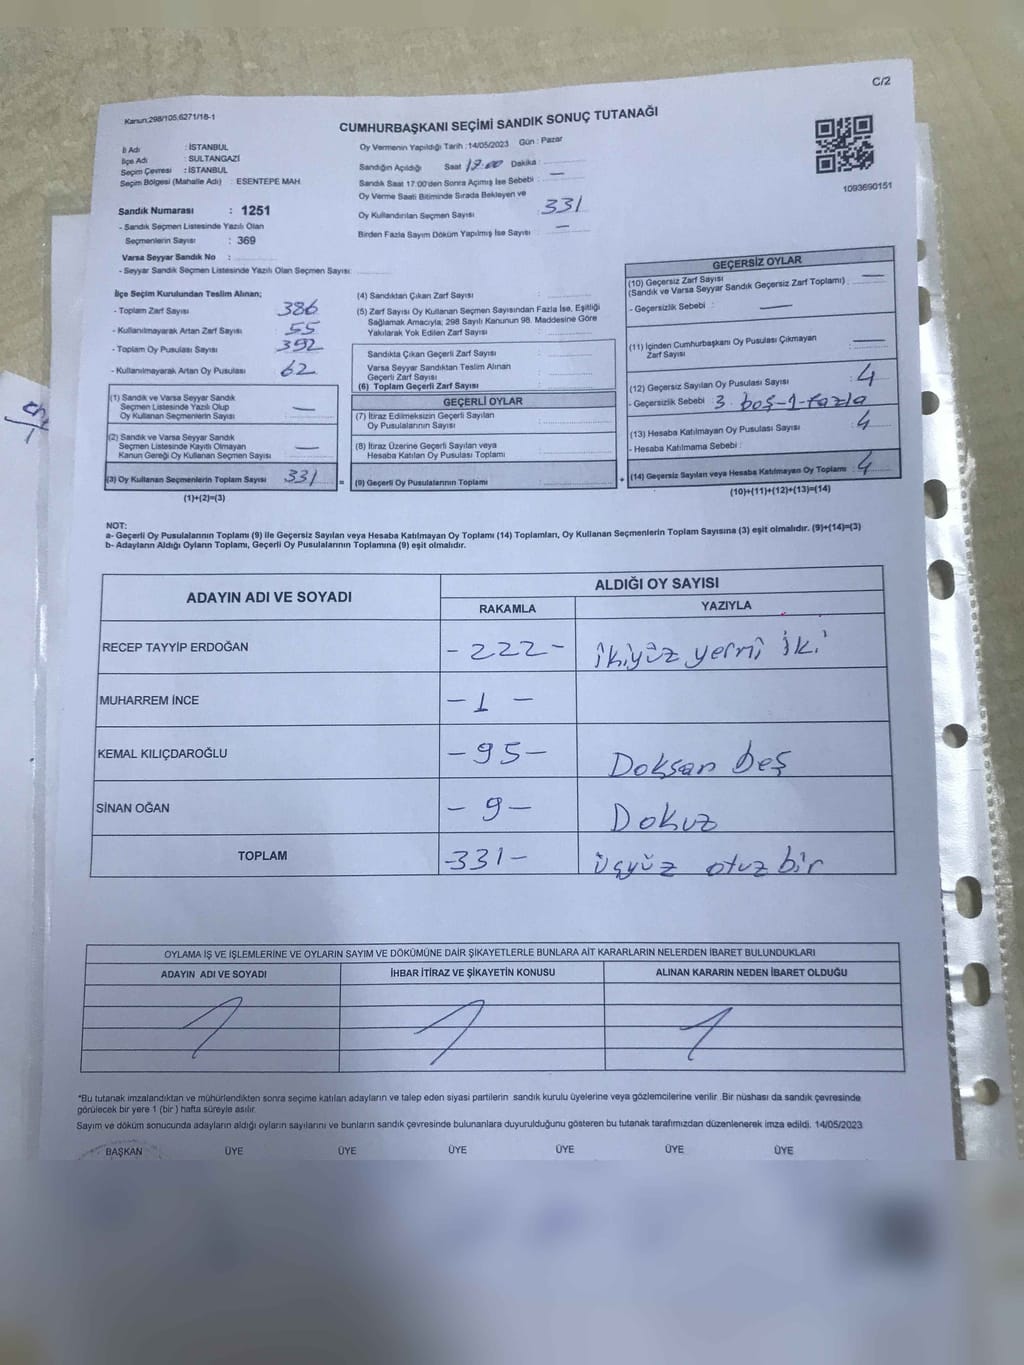 C/2
Kanun;298/105,6271/18-1
CUMHURBAŞKANI SEÇİMİ SANDIK SONUÇ TUTANAĞI
İl Adı : İSTANBUL
İlçe Adı : SULTANGAZİ
Seçim Çevresi : İSTANBUL
Seçim Bölgesi (Mahalle Adı) : ESENTEPE MAH
Sandık Numarası : 1251
- Sandık Seçmen Listesinde Yazılı Olan
Seçmenlerin Sayısı : 369
Varsa Seyyar Sandık No :
- Seyyar Sandık Listesinde Yazılı Olan Seçmen Sayısı:
Oy Vermenin Yapıldığı Tarih :14/05/2023 Gün : Pazar
Sandığın Açıldığı Saat 17:00 Dakika :
Sandık Saat 17:00'den Sonra Açımış İse Sebebi : —
Oy Verme Saati Bitiminde Sırada Bekleyen ve
Oy Kullandırılan Seçmen Sayısı : 331
Birden Fazla Sayım Döküm Yapılmış İse Sayısı : —
1093690151
İlçe Seçim Kurulundan Teslim Alınan;
- Toplam Zarf Sayısı : 386
- Kullanılmayarak Artan Zarf Sayısı : 55
- Toplam Oy Pusulası Sayısı : 392
- Kullanılmayarak Artan Oy Pusulası : 62
(1) Sandık ve Varsa Seyyar Sandık
Seçmen Listesinde Yazılı Olup
Oy Kullanan Seçmenlerin Sayısı : —
(2) Sandık ve Varsa Seyyar Sandık
Seçmen Listesinde Kayıtlı Olmayan
Kanun Gereği Oy Kullanan Seçmen Sayısı : —
(3) Oy Kullanan Seçmenlerin Toplam Sayısı : 331 =
(1)+(2)=(3)
(4) Sandıktan Çıkan Zarf Sayısı :
(5) Zarf Sayısı Oy Kullanan Seçmen Sayısından Fazla İse, Eşitliği
Sağlamak Amacıyla; 298 Sayılı Kanunun 98. Maddesine Göre
Yakılarak Yok Edilen Zarf Sayısı :
Sandıkta Çıkan Geçerli Zarf Sayısı :
Varsa Seyyar Sandıktan Teslim Alınan
Geçerli Zarf Sayısı :
(6) Toplam Geçerli Zarf Sayısı :
GEÇERLİ OYLAR
(7) İtiraz Edilmeksizin Geçerli Sayılan
Oy Pusulalarının Sayısı :
(8) İtiraz Üzerine Geçerli Sayılan veya
Hesaba Katılan Oy Pusulası Toplamı :
(9) Geçerli Oy Pusulalarının Toplamı : +
GEÇERSİZ OYLAR
(10) Geçersiz Zarf Sayısı : —
(Sandık ve Varsa Seyyar Sandık Geçersiz Zarf Toplamı)
- Geçersizlik Sebebi : —
(11) İçinden Cumhurbaşkanı Oy Pusulası Çıkmayan
Zarf Sayısı : —
(12) Geçersiz Sayılan Oy Pusulası Sayısı : 4
- Geçersizlik Sebebi : 3 boş-1-fazla
(13) Hesaba Katılmayan Oy Pusulası Sayısı : 4
- Hesaba Katılmama Sebebi :
(14) Geçersiz Sayılan veya Hesaba Katılmayan Oy Toplamı : 4
(10)+(11)+(12)+(13)=(14)
NOT:
a- Geçerli Oy Pusulalarının Toplamı (9) ile Geçersiz Sayılan veya Hesaba Katılmayan Oy Toplamı (14) Toplamları, Oy Kullanan Seçmenlerin Toplam Sayısına (3) eşit olmalıdır. (9)+(14)=(3)
b- Adayların Aldığı Oyların Toplamı, Geçerli Oy Pusulalarının Toplamına (9) eşit olmalıdır.
ADAYIN ADI VE SOYADI
ALDIĞI OY SAYISI
RAKAMLA YAZIYLA
RECEP TAYYİP ERDOĞAN -222- ikiyüz yermi iki
MUHARREM İNCE -1-
KEMAL KILIÇDAROĞLU -95- Doksan beş
SİNAN OĞAN -9- Dokuz
TOPLAM -331- üçyüz otuz bir
OYLAMA İŞ VE İŞLEMLERİNE VE OYLARIN SAYIM VE DÖKÜMÜNE DAİR ŞİKAYETLERLE BUNLARA AİT KARARLARIN NELERDEN İBARET BULUNDUKLARI
ADAYIN ADI VE SOYADI İHBAR İTİRAZ VE ŞİKAYETİN KONUSU ALINAN KARARIN NEDEN İBARET OLDUĞU
*Bu tutanak imzalandıktan ve mühürlendikten sonra seçime katılan adayların ve talep eden siyasi partilerin sandık kurulu üyelerine veya gözlemcilerine verilir. Bir nüshası da sandık çevresinde
görülecek bir yere 1 (bir ) hafta süreyle asılır.
Sayım ve döküm sonucunda adayların aldığı oyların sayılarını ve bunların sandık çevresinde bulunanlara duyurulduğunu gösteren bu tutanak tarafımızdan düzenlenerek imza edildi. 14/05/2023
BAŞKAN ÜYE ÜYE ÜYE ÜYE ÜYE ÜYE